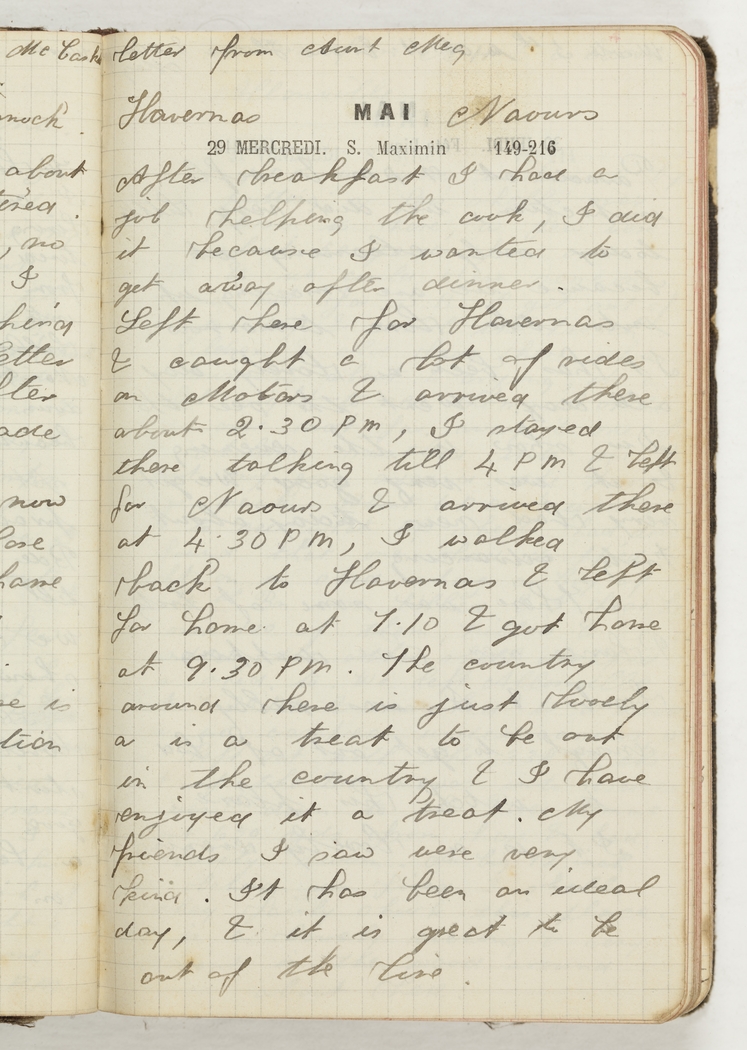 letter from Aunt Meg
Havernas MAI Naours
29 MERCREDI. S. Maximin 149-216
After breakfast I had a
job helping the cook, I did
it because I wanted to
get away after dinner.
Left here for Havernas
& caught a lot of rides
on Motors & arrived there
about 2.30 PM, I stayed
there talking till 4 PM & left
for Naours & arrived there
at 4.30 PM, I walked
back to Havernas & left
for home at 7.10 & got home
at 9.30 PM. The country
around here is just lovely
a is a treat to be out
in the country & I have
enjoyed it a treat. My
friends I saw were very
kind. It has been an ideal
day, & it is great to be
out of the line.
Mc Cask
about
, no
I
etter
ade
now
is
tion